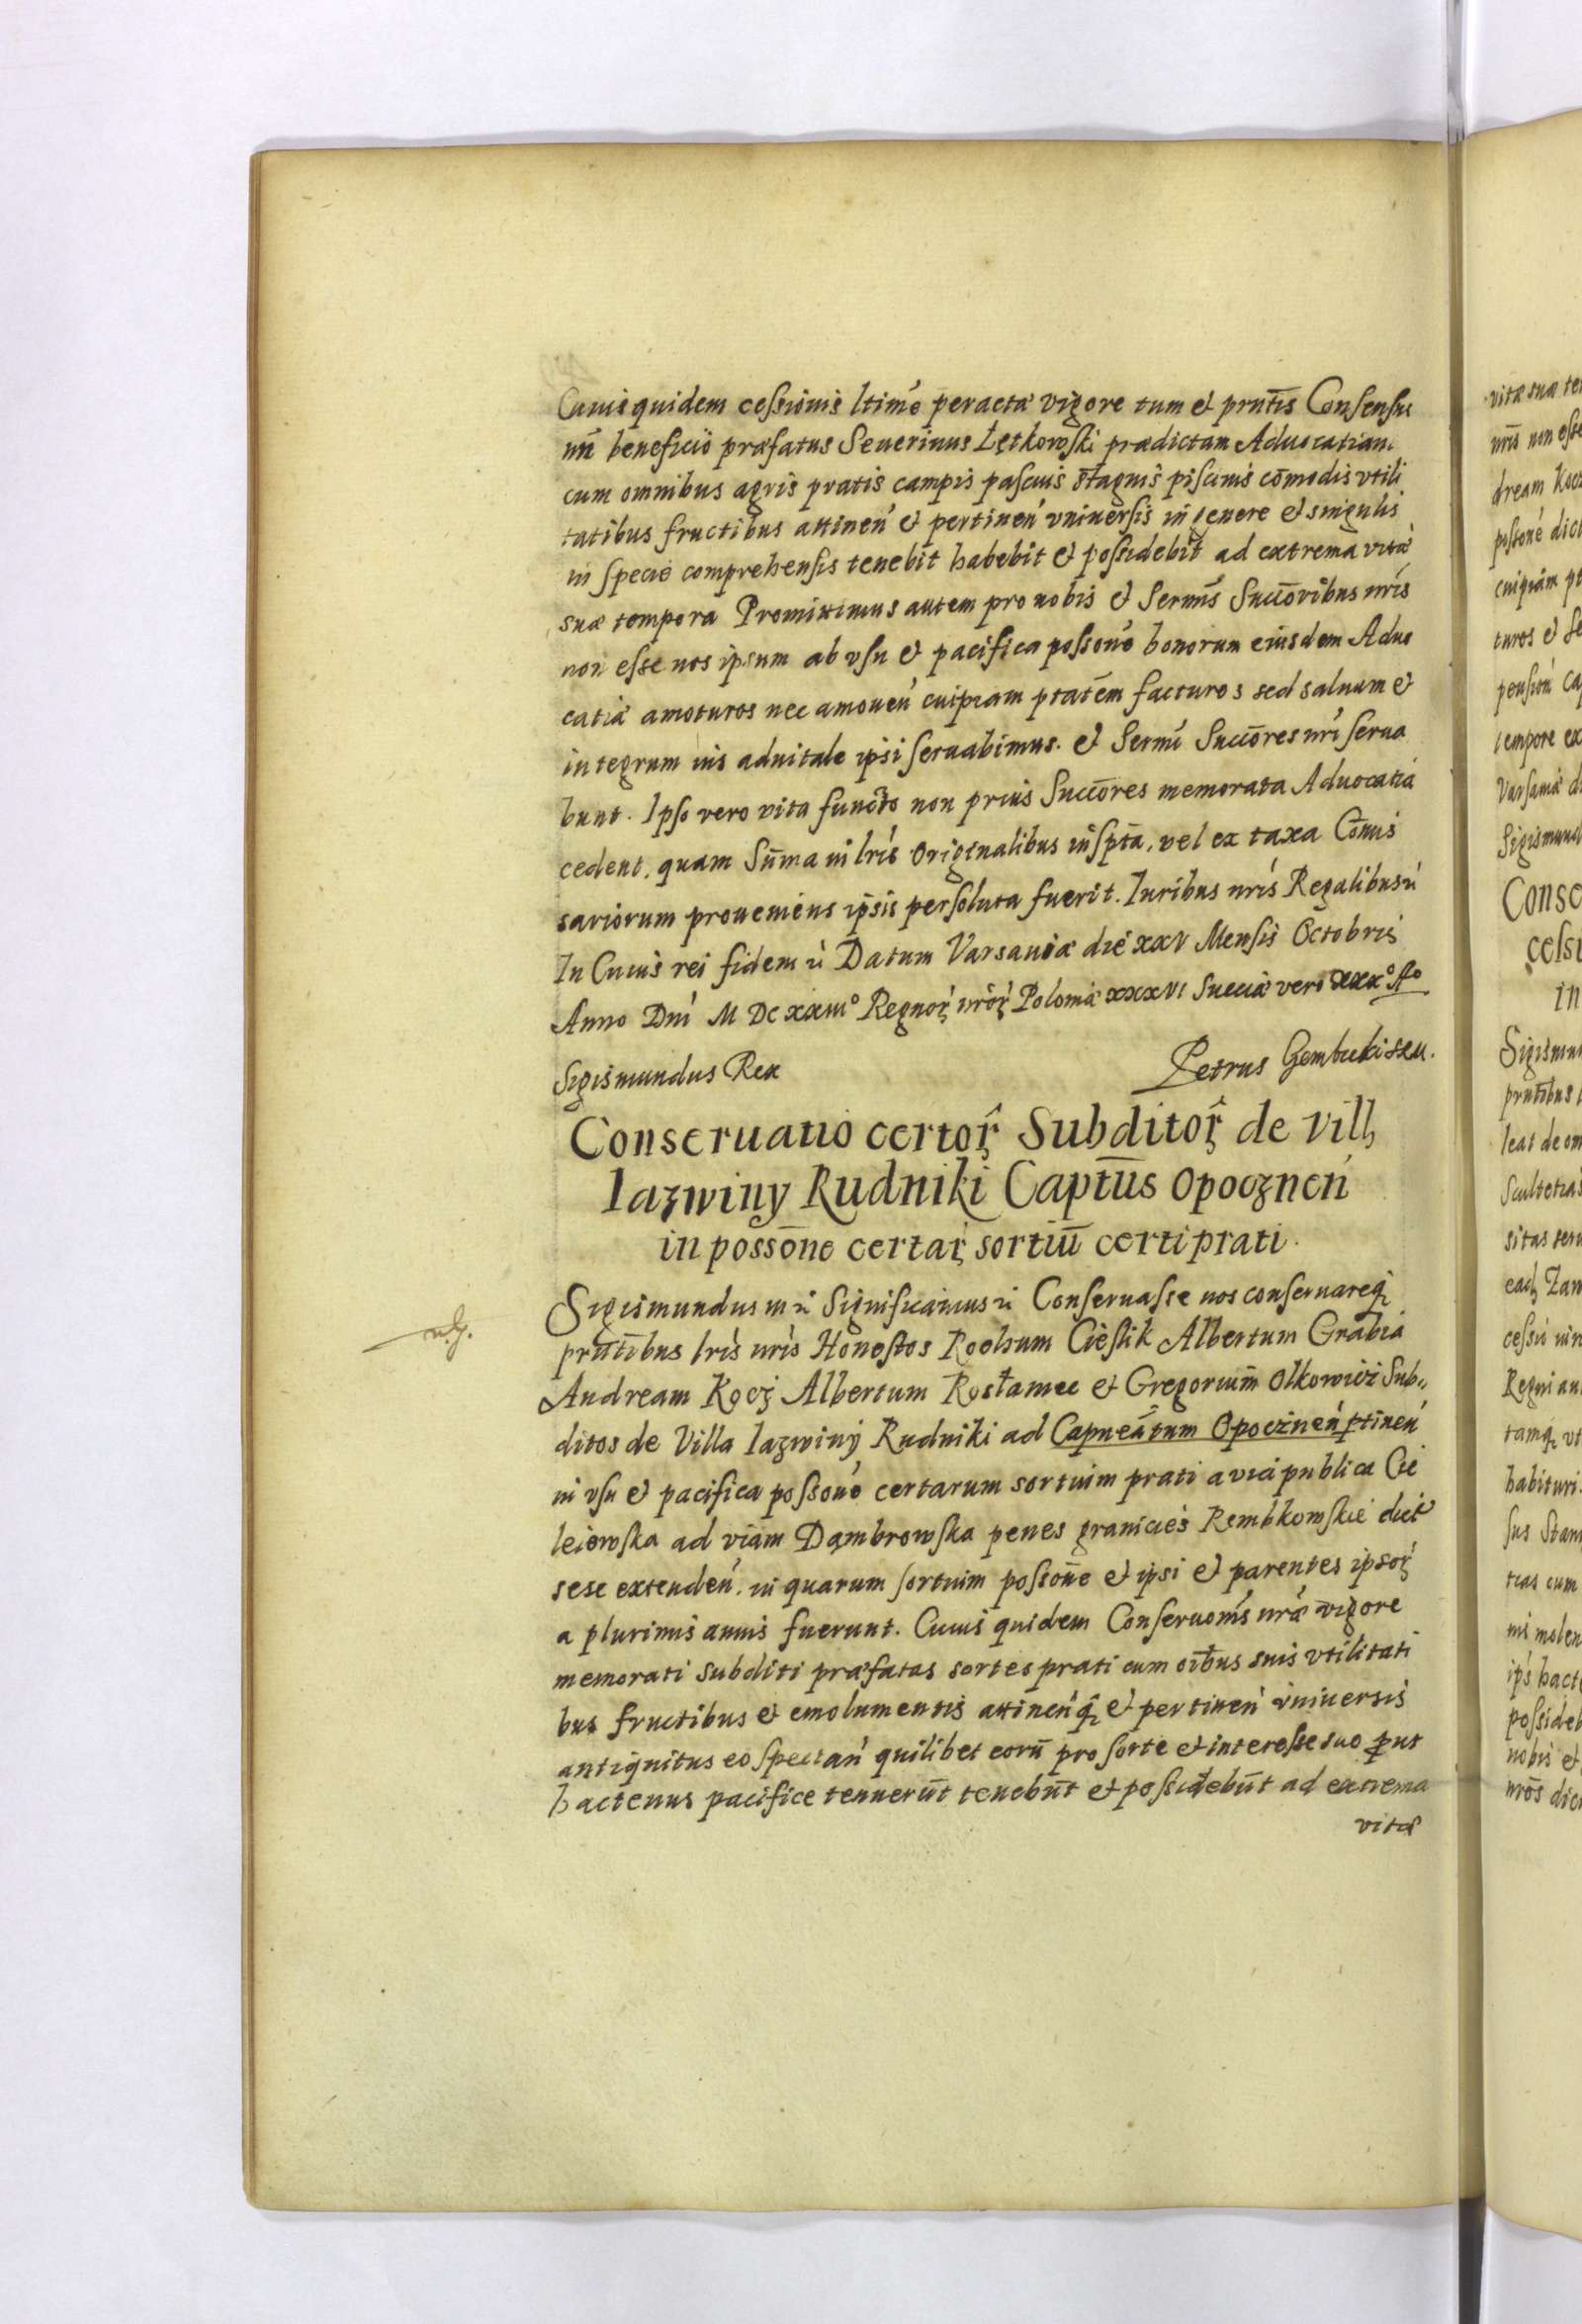 Cuius quidem cessionis ltimè peractæ vigore tum et prntis Consensus
nri beneficio præfatus Seuerinus Lętkowski prædictam Aduocatiam
cum omnibus agris pratis campis pascuis stagnis piscinis cōmodis vtili
tatibus fructibus attineń et pertineń vniuersis in genere et singulis
in specie comprehensis tenebit habebit et possidebit ad extrema vitæ
suæ tempora Promittimus autem pro nobis et Sermis Succoribus nris
non esse nos ipsum ab vsu et pacifica possone bonorum eiusdem Aduo
catiæ amoturos nec amoueń cuipiam ptatem facturos sed saluum et
integrum ius aduitale ipsi seruabimus. et Sermi Succores nri serua
bunt. Ipso vero vita functo non prius Succores memorata Aduocatia
cedent, quam Sūma in lris Originalibus inspta, vel ex taxa Cōmis
sariorum proueniens ipsis persoluta fuerit. Iuribus nris Regalibus
In Cuius rei fidem Datum Varsauiæ die xxv Mensis Octobris
Anno Dni M DC xxiii° Regnor nror Poloniæ xxxvi Sueciæ vero xxx°
Sigismundus Rex Petrus Gembicki
Conseruatio certor Subditor de vill
Iazwiny Rudniki Captus Opoczneń
in possone certar sortiū certi prati.
Sigismundus III Significamus Conseruasse nos conseruareq
prntibus lris nris Honestos Rochum Cieslik Albertum Grabia
Andream Kocz Albertum Rostamec et Gregorium Olkowicz Sub„
ditos de Villa Iazwiny Rudniki ad Capneatum Opoczneń ptineń
in vsu et pacifica possone certarum sortium prati a via publica Cie
leiowska ad viam Dąmbrowska penes granicies Rembkowskie dict
sese extendeń. in quarum sortium possone et ipsi et parentes ipsor
a plurimis annis fuerunt. Cuius quidem Conseruonis nræ vigore
memorati subditi præfatas sortes prati cum oibus suis vtilitati
bus fructibus et emolumentis attineńq et pertineń vniuersis
antiquitus eo spectań quilibet eorū pro sorte et interesse suo put
hactenus pacifice tenuerūt tenebūt et possidebūt ad extrema
vitæ